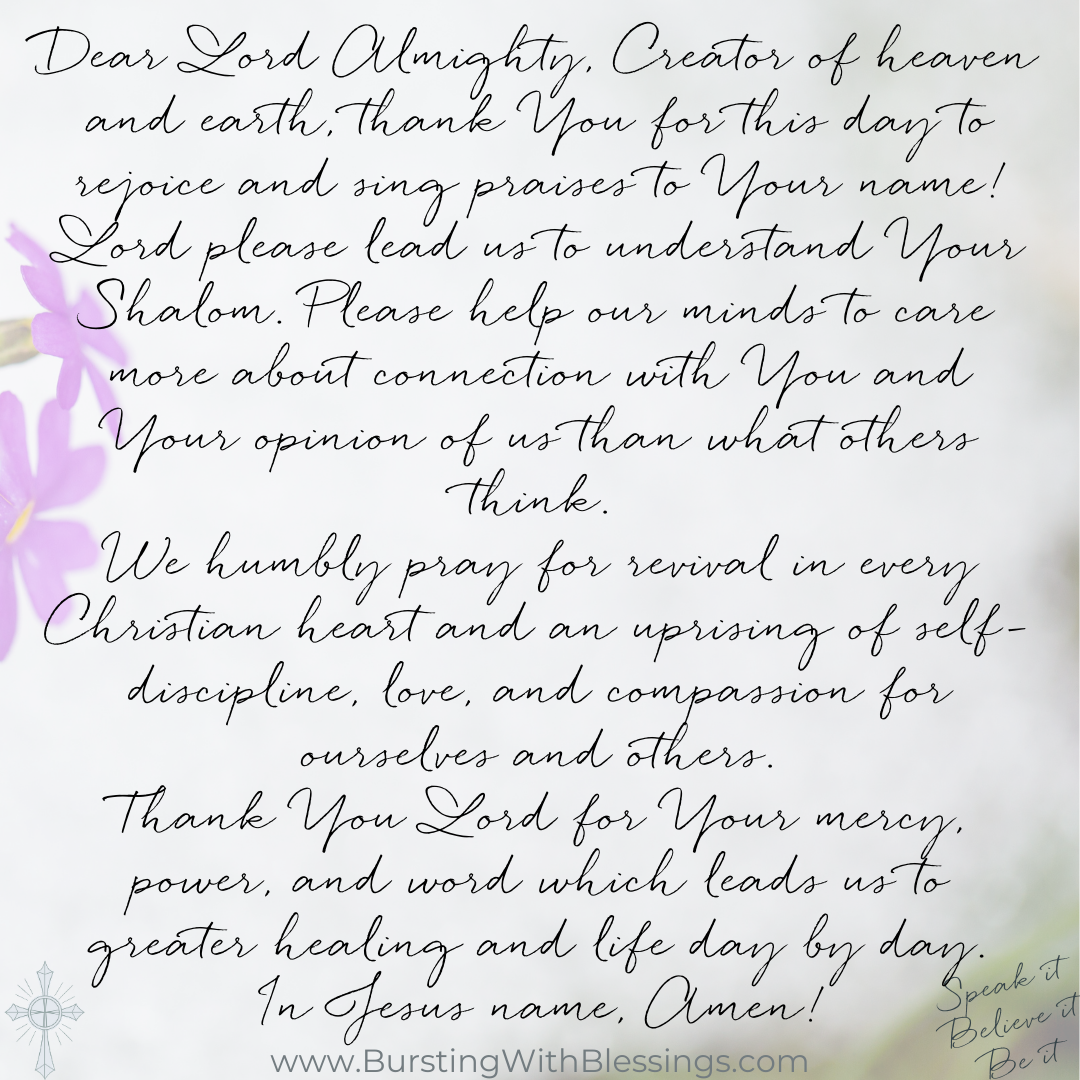 Dear Lord Almighty, Creator of heaven
and earth, thank You for this day to
rejoice and sing praises to Your name!
Lord please lead us to understand Your
Shalom. Please help our minds to care
more about connection with You and
Your opinion of us than what others
think.
We humbly pray for revival in every
Christian heart and an uprising of self-
discipline, love, and compassion for
ourselves and others.
Thank You Lord for Your mercy,
power, and word which leads us to
greater healing and life day by day.
In Jesus name, Amen!
Speak it
Believe it
Be it
www.BurstingWithBlessings.com